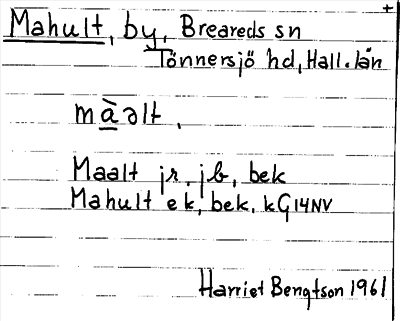 +
Mahult, by, Breareds sn
Tönnersjö hd, Hall. län
màəlt,
Maalt jr, jb, bek
Mahult ek, bek, kG14NV
Harriet Bengtson 1961